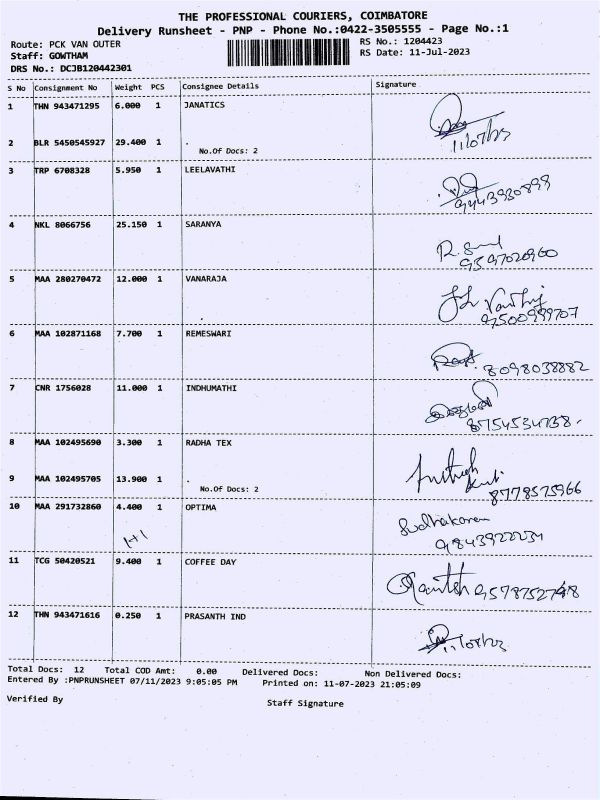 THE PROFESSIONAL COURIERS, COIMBATORE
Delivery Runsheet - PNP - Phone No.:0422-3505555 - Page No.:1
Route: PCK VAN OUTER
RS No.: 1204423
Staff: GOWTHAM
RS Date: 11-Jul-2023
DRS No.: DCJB120442301
S No Consignment No Weight PCS Consignee Details Signature
1 THN 943471295 6.000 1 JANATICS
11/07/23
2 BLR 5450545927 29.400 1 .
No.Of Docs: 2
3 TRP 6708328 5.950 1 LEELAVATHI
9443930899
4 NKL 8066756 25.150 1 SARANYA
9597020960
5 MAA 280270472 12.000 1 VANARAJA
9500999707
6 MAA 102871168 7.700 1 REMESWARI
8098038882
7 CNR 1756028 11.000 1 INDHUMATHI
8754534738
8 MAA 102495690 3.300 1 RADHA TEX
9 MAA 102495705 13.900 1 .
No.Of Docs: 2
8778575966
10 MAA 291732860 4.400 1 OPTIMA
Sudhakaran
1+1
9843922234
11 TCG 50420521 9.400 1 COFFEE DAY
12 THN 943471616 0.250 1 PRASANTH IND
11/07/23
Total Docs: 12 Total COD Amt: 0.00 Delivered Docs: Non Delivered Docs:
Entered By :PNPRUNSHEET 07/11/2023 9:05:05 PM Printed on: 11-07-2023 21:05:09
Verified By
Staff Signature